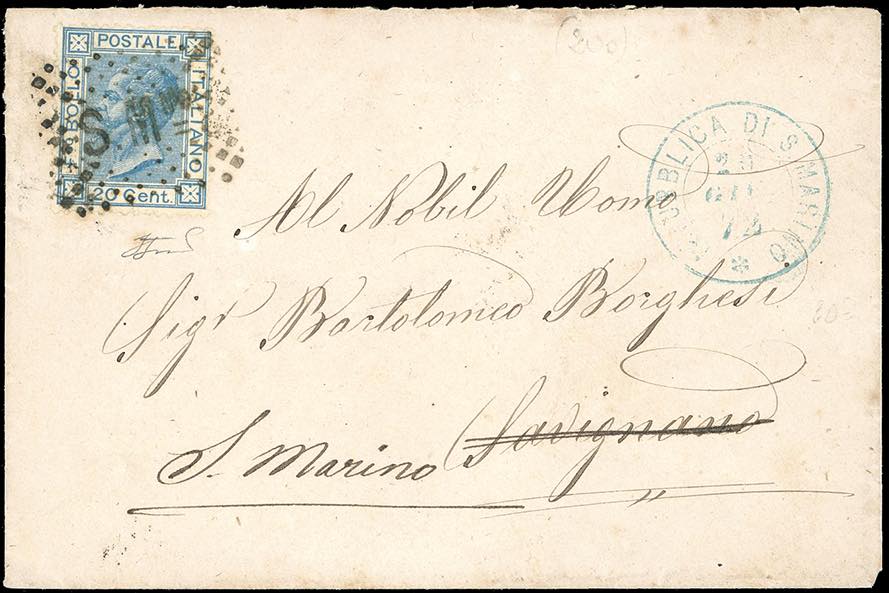 POSTALE
F. BOLLO
ITALIANO
20 Cent.
S M
(200)
REPUBBLICA DI S. MARINO *
Al Nobil Uomo
Sigr Bartolomeo Borghesi
S. Marino Savignano